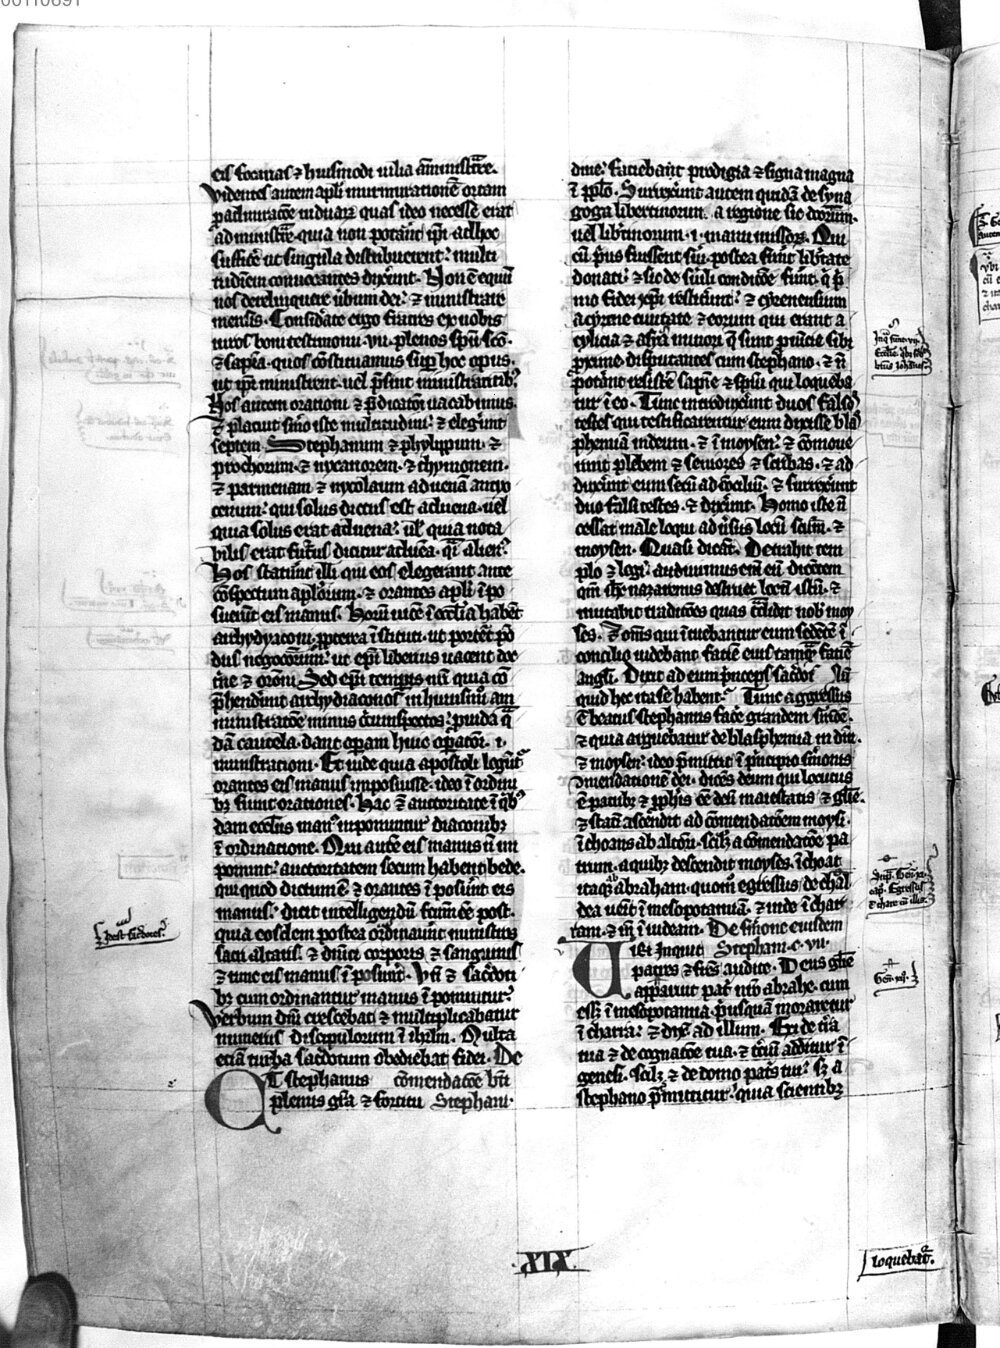 00110691
eis focarias ⁊ huiusmodi uilia ãministrare.
Videntes autem apli murmurationẽ ortam
ad ministrare. quia non poterant ipi adhoc
sufficere ut singula distribuerent: multi
tudinem conuocantes dixerunt. Non ẽ equũ
nos derelinquere uerbum dei: ⁊ ministrare
mensis. Considerate ergo fratres ex uobis
uiros boni testimonii .vii. plenos spũ scõ.
⁊ sapia. quos cõstituamus sup hoc opus.
ut ipi ministrent. uel presint ministrantib⁹
Nos autem orationi ⁊ predicationi uacabimus.
⁊ placuit sermo iste multitudini: ⁊ elegerunt
septem. Stephanum ⁊ phylippum. ⁊
prochorum. ⁊ nycanorem. ⁊ thymonem.
⁊ parmenam ⁊ nycolaum aduenã antyo
cenum: qui solus dictus est aduena. uel
quia solus erat aduena: uel quia nota
bilis erat furtus dicitur aduena. qi alien⁹.
Hos statuerunt illi qui eos elegerant ante
cõspectum aplorum. ⁊ orantes apli ipo
suerunt eis manus. Horũ uice i ecclia habent
archydyaconi. ppterea istituti. ut portent põ
dus negociorum: ut epi liberius uacent doc
trine ⁊ oroni. Sed epi temporis nri quia cõ
prehenderunt archydiaconos in huiusmodi am
ministratione minus circumspectos: prouida quã
dã cautela. dant operam huic operatori. i.
ministrationi. Et inde quia apostoli leguntur
orantes eis manus imposuisse. ideo i ordini
bʒ fiunt orationes. Hac ẽ auctoritate i qbʒ
dam ecclesiis manus imponuntur diaconibʒ
i ordinatione. Qui autẽ eis manus nõ im
ponunt: auctoritatem secum habent bede.
qui quod dictum ẽ ⁊ orantes iposuerunt eis
manus: dicit intelligendũ factum ẽe post.
quia eosdem postea ordinauerunt ministros
sacri altaris. ⁊ diuini corporis ⁊ sanguinis
⁊ tunc eis manus iposuerunt. Vn ⁊ sacerdoti
bʒ cum ordinantur manus iponuntur.
Verbum dni crescebat ⁊ multiplicabatur
numerus discipulorum i ihrlm. Multa
etiã turba sacerdotum obediebat fidei. De
AT stephanus cõmendatiõe bti
plenus gra ⁊ fortitu Stephani.
dine: faciebant prodigia ⁊ signa magna
i pplo. Surrexerunt autem quidã de syna
goga libertinorum. a regione sic dictorum.
uel libertinorum .i. manumissorʒ. Qui
cũ prius fuissent serui. postea sunt libertate
donati: ⁊ sic de simili condicõe sunt. q pri
mo fidei xpi restiterunt: ⁊ cyrenensium
a cyrene ciuitate ⁊ eorum qui erant a
cylicia ⁊ asya minori q sunt puicie sibi
proxime. disputantes cum stephano. ⁊ nõ
poterant resistere sapie ⁊ spiritui qui loqueba
tur i eo. Tunc introduxerunt duos falsos
testes qui testificarentur eum dixisse blas
phemiã in deum. ⁊ i moysen: ⁊ cõmoue
runt plebem ⁊ seniores ⁊ scribas. ⁊ ad
duxerunt eum secũ ad cõcilium. ⁊ surrexerunt
duo falsi testes. ⁊ dixerunt. Homo iste nõ
cessat male loqui aduersus locũ scũm. ⁊
moysen. Quasi dicat. Detrahit tem
plo ⁊ legi: audiuimus eni eũ dicentem
qm ihc nazarenus destruet locũ istũ. ⁊
mutabit traditiones quas tradidit nobis moy
ses. ⁊ omnes qui ituebantur eum sedentẽ i
concilio uidebant faciẽ eius tamquã faciẽ
angli. Dixit ad eum princeps sacerdotum Nũ
quid hec ita se habent? Tunc aggressus
ẽ beatus stephanus facere grandem sermonẽ.
⁊ quia arguebatur de blasphemia in dũm.
⁊ moysen: ideo premittit i principio sermonis
cõmendationẽ dei. dicens deum qui locutus
ẽ patribʒ ⁊ pphis ẽe deũ maiestatis ⁊ glie.
⁊ statim ascendit ad cõmendationem moysi.
ichoans ab altiori. scilʒ a cõmendatõe pa
trum. a quibʒ descendit moyses. ichoat
itaqʒ ab abraham. quomodo egressus de chal
dea uenit i mesopotamiã. ⁊ inde i char
ram. ⁊ in iudeam. De sermone eiusdem
Uiri inquit Stephani. c. vii.
patres ⁊ fratres audite. Deus glorie
apparuit patri nro abrahe. cum
esset i mesopotamia. priusquã moraretur
i charra: ⁊ dixit ad illum. Exi de terra
tua ⁊ de cognatiõe tua. ⁊ tercium additur i
genesi. scilʒ ⁊ de domo patris tui: sʒ a
stephano pretermittitur. quia scientibʒ
Gen. xij.
XIX.
loquebatur.